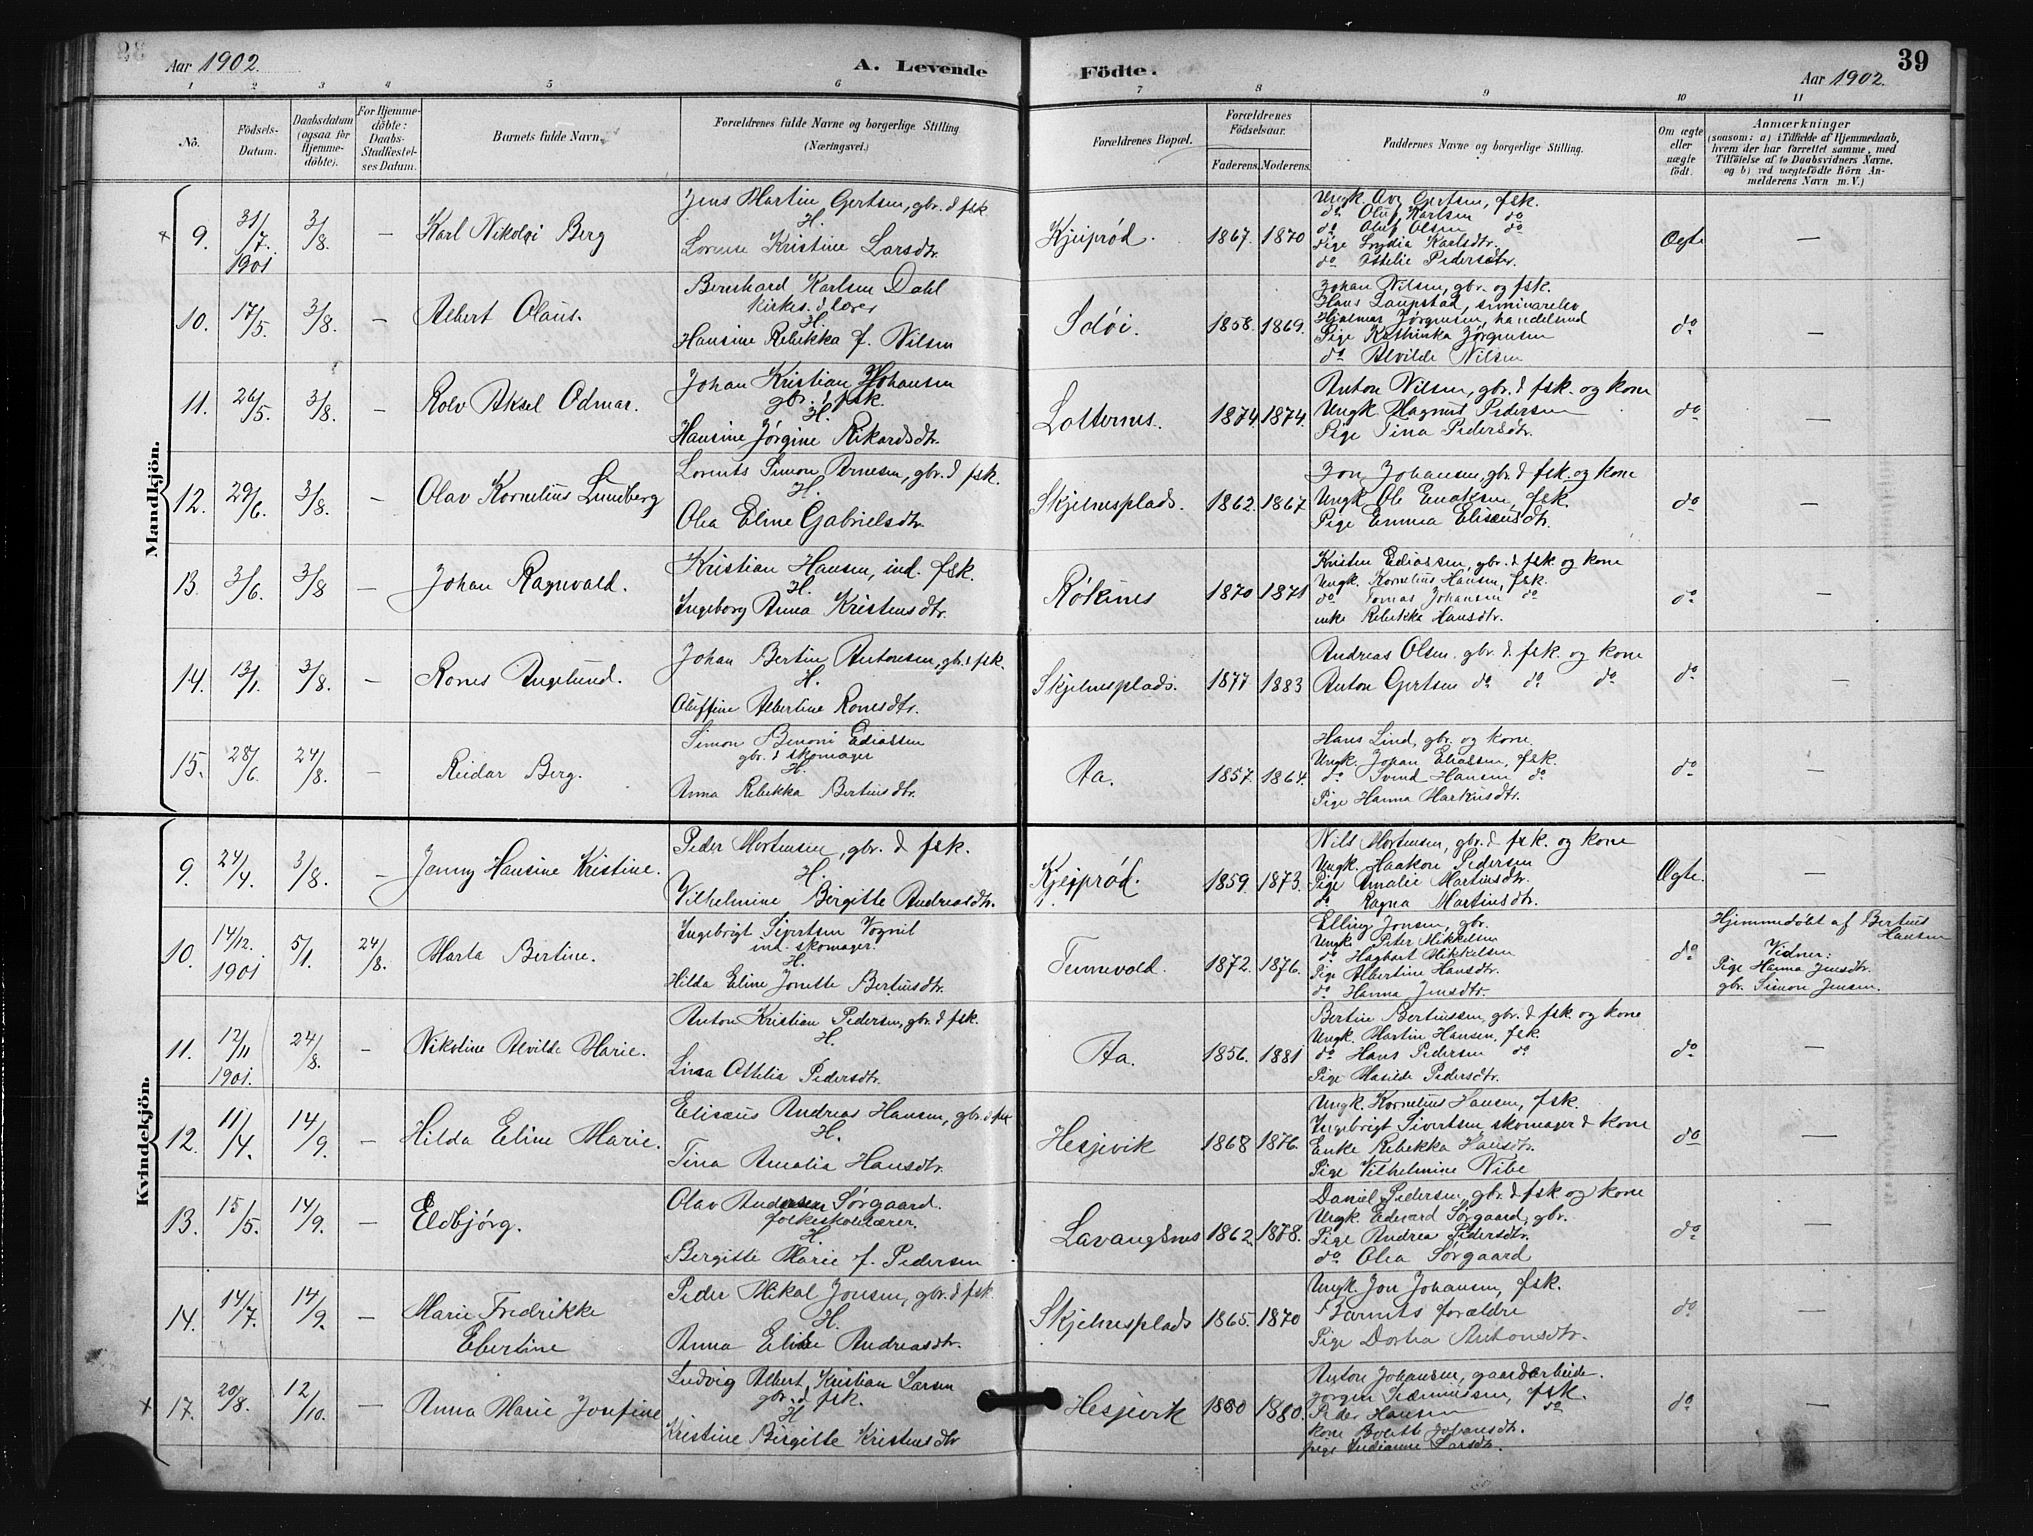 Aar 1902. A. Levende Födte. Aar 1902. 39
1 2 3 4 5 6 7 8 9 10 11
No. Födsels-Datum. Daabsdatum (ogsaa for Hjemmedöbte). For Hjemmedöbte: Daabs-Stadfæstelses Datum. Barnets fulde Navn. Forældrenes fulde Navne og borgerlige Stilling (Næringsvei.) Forældrenes Bopæl. Forældrenes Födselsaar. Faderens. Moderens. Faddernes Navne og borgerlige Stilling. Om ægte eller uægte födt. Anmærkninger (saasom: a) i Tilfælde af Hjemmedaab, hvem der har forrettet samme, med Tilföielse af to Daabsvidners Navne, og b) ved uægtefödte Börn Anmelderens Navn m. V.)
Mandkjön.
9. 31/7. 1901 3/8. — Karl Nikolai Berg
Jens Martin Gertsen, gbr. & fsk
H.
Lorense Kristine Larsdtr.
Kjeiprød. 1867. 1870
Ungk. Ove Gertsen, fsk.
do Oluf Karlsen do
do Oluf Olsen do
Pige Lydia Karlsdtr.
do Othelie Pedersdtr.
Ægte —
10. 17/5. 3/8. — Albert Olaus.
Bernhard Karlsen Dahl
Kirkes. & lærer
H.
Hansine Rebekka f. Nilsen
1858. 1869.
Johan Nilsen, gbr. og fsk.
Hans Laupstad, seminarelev
Hjalmar Jørgensen, handelsmd
Pige Kathinka Jørgensen
do Alvilde Nilsen
do —
11. 26/5. 3/8. — Rolv Aksel Odmar.
Johan Kristian Johansen
gbr. & fsk.
H.
Hansine Jørgine Rikardsdtr.
1874. 1874.
Anton Nilsen, gbr. & fsk. og kone
Ungk. Magnus Pedersen
Pige Tina Pedersdtr.
do —
12. 29/6. 3/8. — Olav Kornelius Lundberg
Lorents Simon Arnesen, gbr. & fsk.
H.
Olea Eline Gabrielsdtr.
Skjelnesplads. 1862. 1867
Jon Johansen, gbr. & fsk. og kone
Ungk. Ole Enoksen, fsk.
Pige Emma Elisæusdtr.
do —
13. 3/6. 3/8 — Johan Ragnvald.
Kristian Hansen, ind. fsk.
H.
Ingeborg Anna Kristensdtr.
Røkenes 1870 1871
Kristen Ediassen, gbr. & fsk. og kone
Ungk. Kornelius Hansen, fsk.
do Tomas Johansen do
enke Rebekka Hansdtr.
do —
14. 13/1. 3/8. — Rones Angelund.
Johan Bertin Antonsen, gbr. & fsk.
H.
Oluffine Albertine Ronesdtr.
Skjelnesplads. 1877 1883
Andreas Olsen gbr. & fsk. og kone
Anton Gertsen do do do
do —
15. 28/6. 24/8. — Reidar Berg.
Simon Benoni Ediassen
gbr. & skomager
H.
Anna Rebekka Bertinsdtr.
Aa. 1857. 1864.
Hans Lind, gbr. og kone
Ungk. Johan Eliassen, fsk.
do Svend Hansen do
Pige Hanna Markusdtr.
do —
Kvindekjön.
9. 24/4. 3/8. — Jenny Hansine Kristine.
Peder Mortensen, gbr. & fsk.
H.
Vilhelmine Birgitte Andreasdtr.
Kjeiprød. 1859. 1873.
Nils Mortensen, gbr. & fsk. og kone
Ungk. Haakon Pedersen
Pige Amalie Martinsdtr.
do Ragna Martinsdtr.
Ægte. —
10. 14/12. 1901 5/1. 24/8. Marta Bertine.
Ingebrigt Sivertsen Vognil
ind. skomager.
H.
Hilda Eline Jonette Bertinsdtr.
Tennevold. 1872. 1876.
Elling Jonsen, gbr.
Ungk. Peter Mikkelsen
do Hagbart Mikkelsen
Pige Albertine Hansdtr.
do Hanna Jensdtr.
do
Hjemmedøbt af Berteus Hansen
Vidner:
Pige Hanna Jensdtr.
gbr. Simon Jensen.
11. 12/11 1901. 24/8. — Nikoline Alvilde Marie.
Anton Kristian Pedersen, gbr. & fsk.
H.
Lina Othilia Pedersdtr.
Aa. 1856. 1881
Bertin Bertinssen, gbr. & fsk og kone
Ungk. Martin Hansen, fsk.
do Hans Pedersen do
Pige Matilde Pedersdtr.
do —
12. 11/4. 14/9. — Hilda Eline Marie.
Elisæus Andreas Hansen, gbr. & fsk
H.
Tina Amalia Hansdtr.
Hesjevik 1868 1876.
Ungk. Kornelius Hansen, fsk.
Ingebrigt Sivertsen skomager & kone
Enke Rebekka Hansdtr.
Pige Vilhelmine Vibe
do —
13. 15/5. 14/9. — Eldbjørg.
Olav Andersen Sørgaard.
folkeskolelærer.
H.
Bergitte Marie f. Pedersen
Lavangsnes 1862. 1878.
Daniel Pedersen, gbr. & fsk og kone
Ungk. Edvard Sørgaard, gbr.
Pige Andrea Pedersdtr.
do Olea Sørgaard
do —
14. 14/7. 14/9. — Marie Fredrikke Ebertine
Peder Mikal Jonsen, gbr. & fsk.
H.
Anna Eline Andreasdtr.
Skjelnesplads 1865. 1870
Ungk. Jon Johansen, fsk.
Barnets forældre
Pige Dortea Antonsdtr.
do —
17. 20/8. 12/10. — Anna Marie Josefine
Ludvig Albert Kristian Larsen
gbr. & fsk.
H
Kristine Birgitte Kristensdtr
Hesjevik 1880 1880.
Anton Johansen, gaardarbeide.
Peder Hansen do
kone Bolette Johansdtr.
pige Indianne Larsdtr.
do —